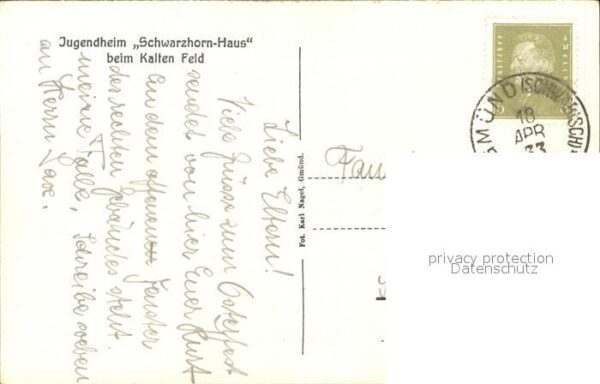 Jugendheim „Schwarzhorn-Haus"
beim Kalten Feld
Liebe Eltern!
Viele Grüsse zum Osterfest
sendet von hier Euer Kurt
An dem offenen Fenster
des rechten Gebäudes steht
meine Falle, Schreibe soeben
an Herrn Lax.
Fot. Karl Nagel, Gmünd.
Fam
GMÜND (SCHWÄBISCH)
18
APR
33
privacy protection
Datenschutz